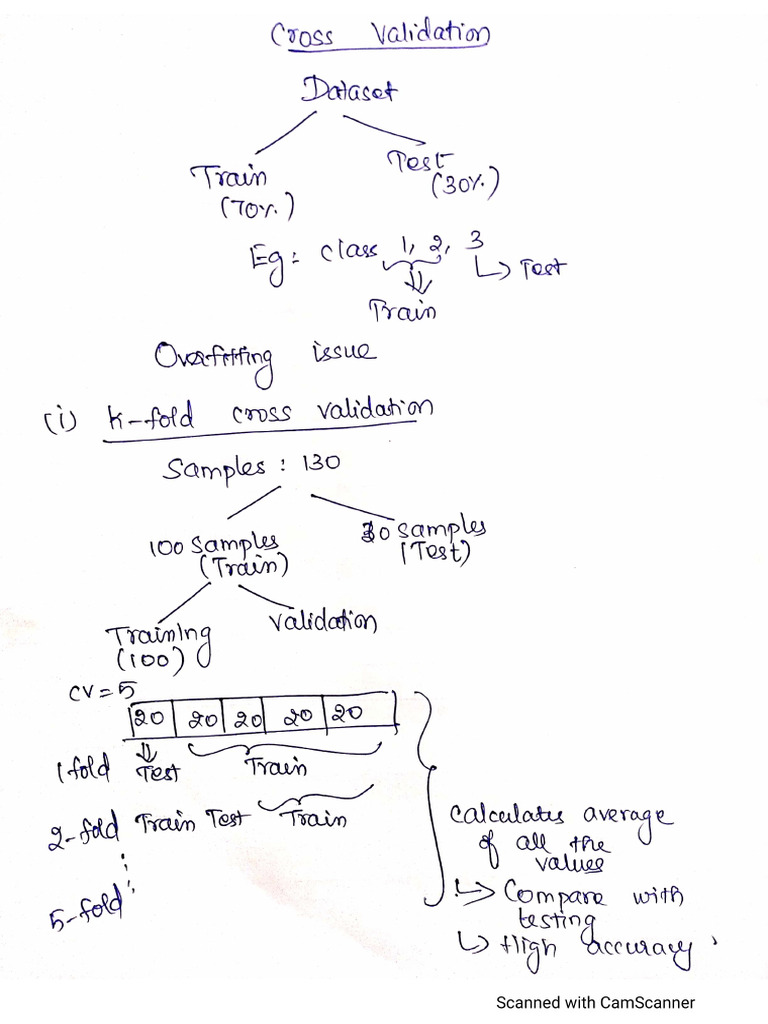 Cross Validation
Dataset
Train Test
(70%) (30%)
Eg: class 1, 2, 3
Test
Train
Overfitting issue
(i) K-fold cross validation
Samples : 130
100 Samples 30 Samples
(Train) (Test)
Training Validation
(100)
CV = 5
20 20 20 20 20
1 fold Test Train
2-fold Train Test Train
5-fold
Calculates average
of all the
values
Compare with
testing
High accuracy
Scanned with CamScanner